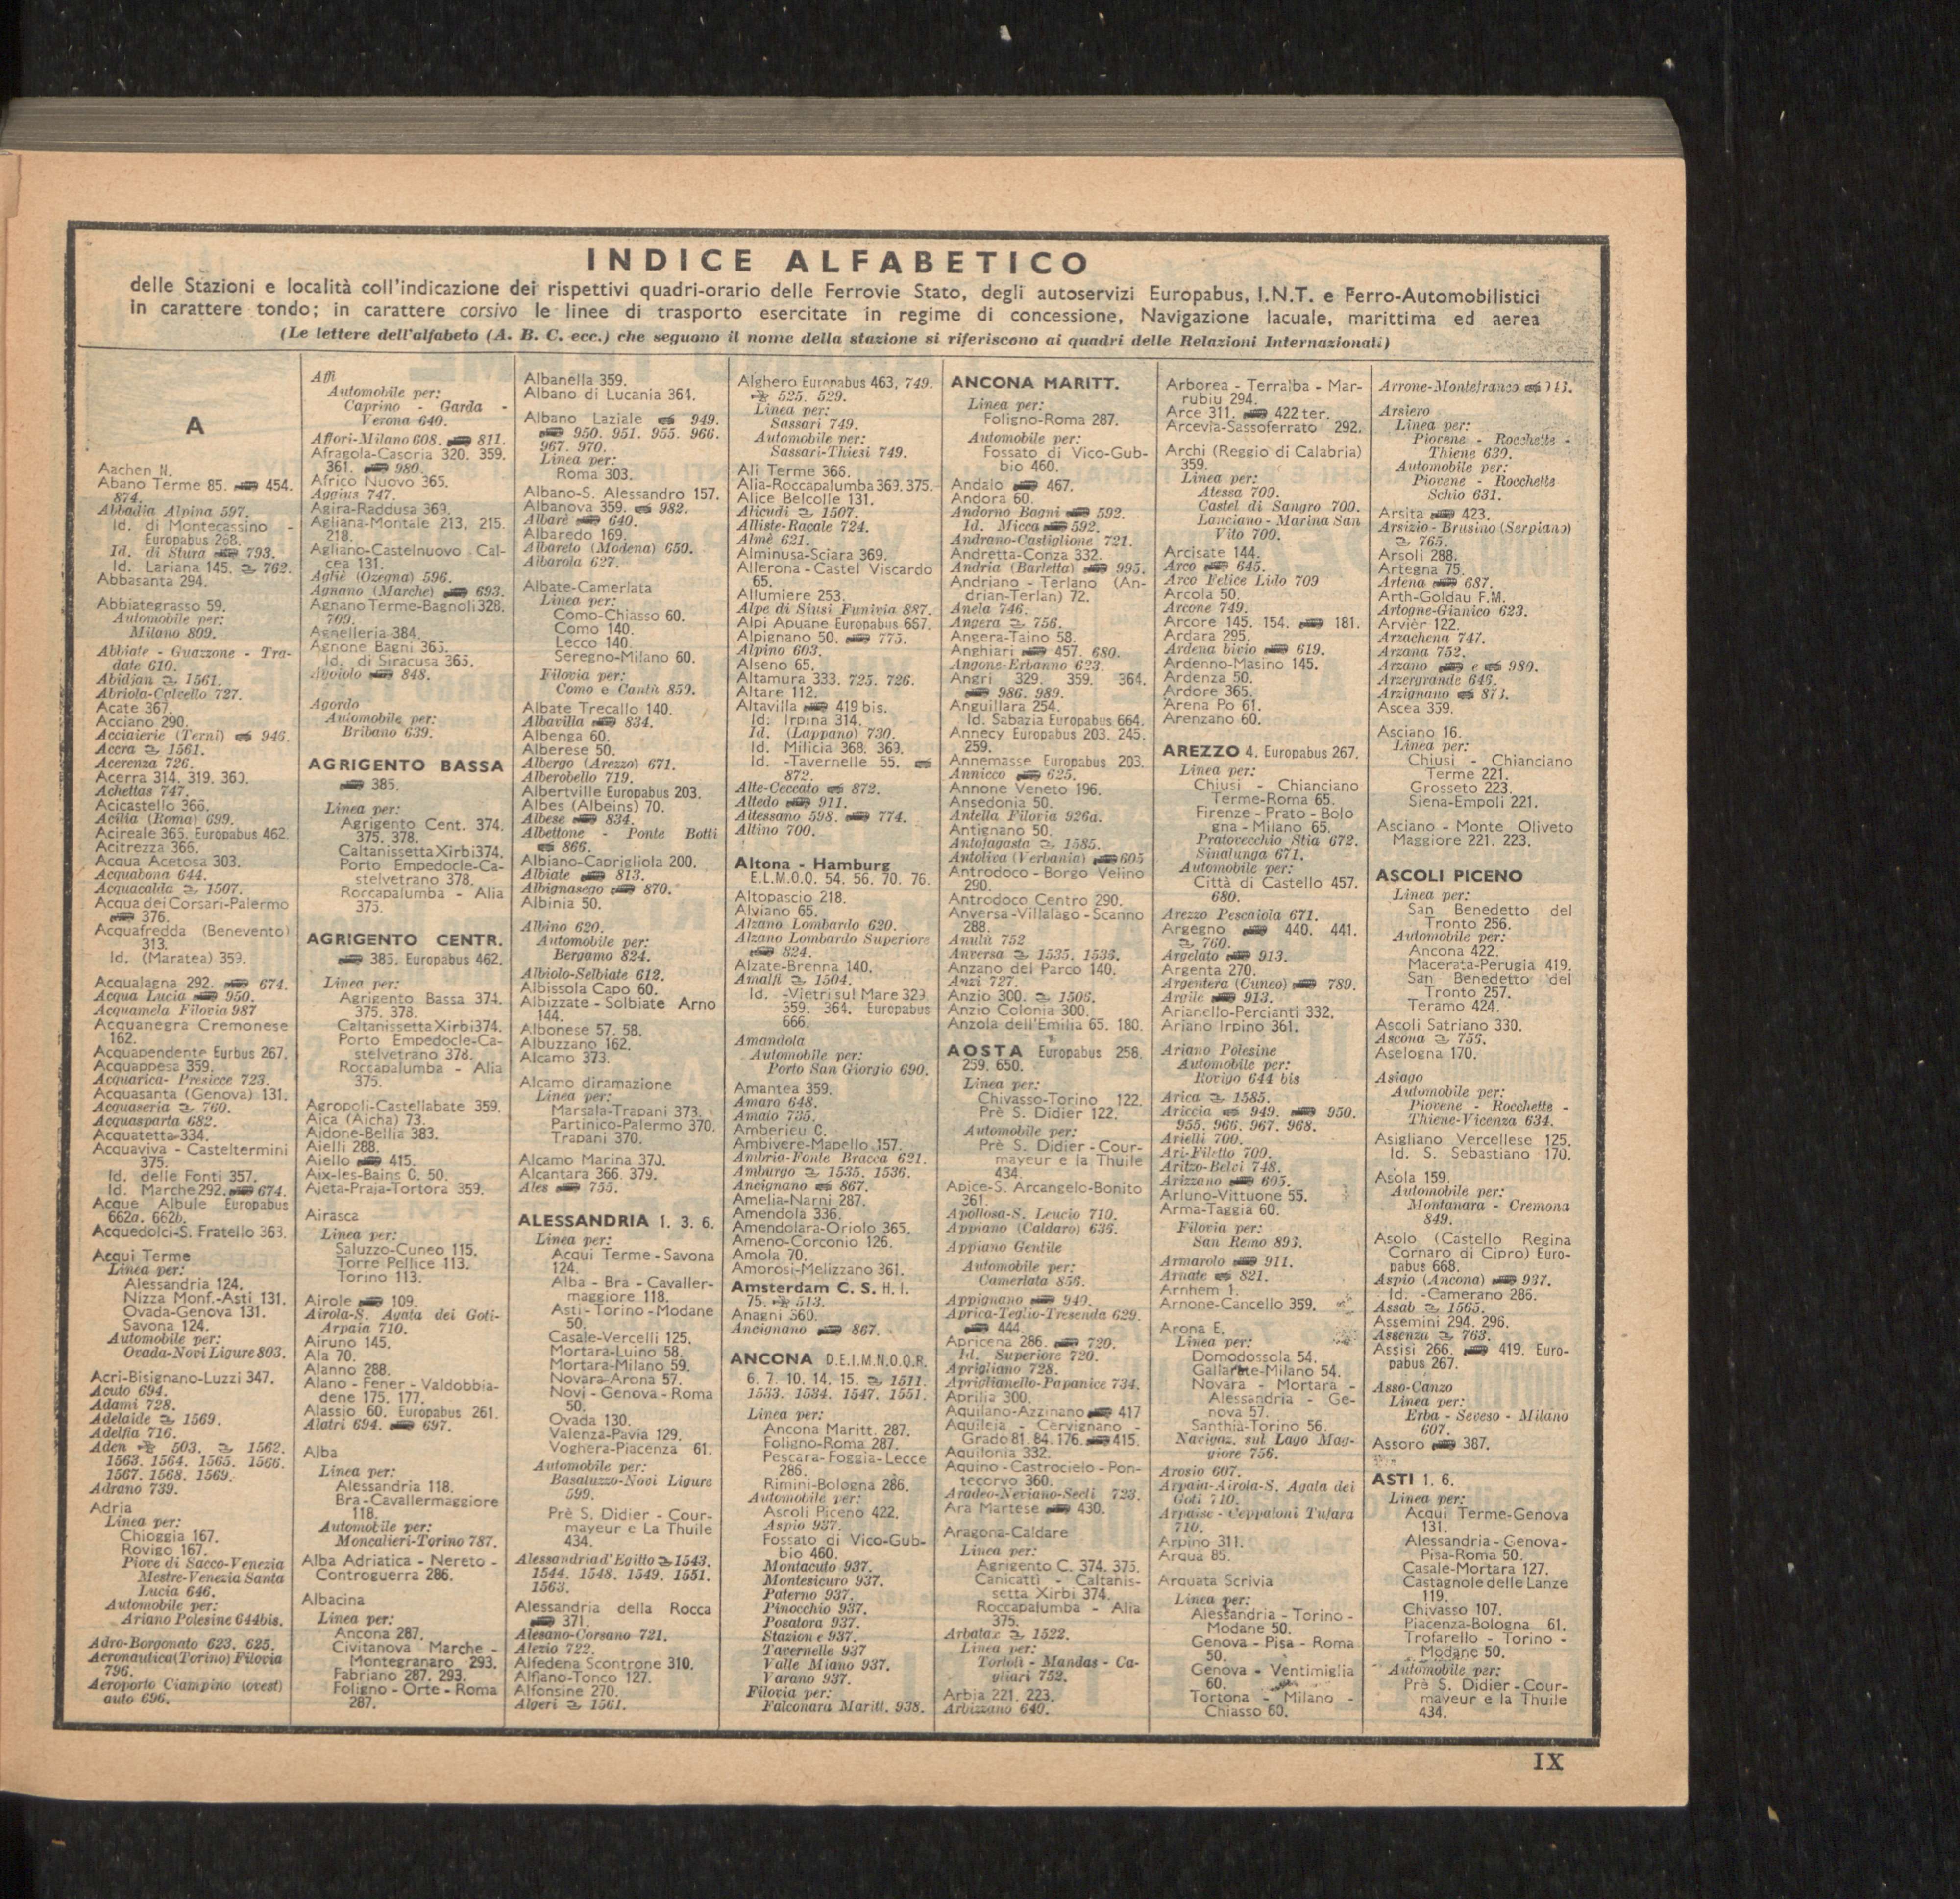 INDICE ALFABETICO
delle Stazioni e località coll'indicazione dei rispettivi quadri-orario delle Ferrovie Stato, degli autoservizi Europabus, I.N.T. e Ferro-Automobilistici
in carattere tondo; in carattere corsivo le linee di trasporto esercitate in regime di concessione, Navigazione lacuale, marittima ed aerea
(Le lettere dell'alfabeto (A. B. C. ecc.) che seguono il nome della stazione si riferiscono ai quadri delle Relazioni Internazionali)
A
Aachen N.
Abano Terme 85. 454.
874.
Abbadia Alpina 597.
Id. di Montecassino -
Europabus 268.
Id. di Stura 793.
Id. Lariana 145. 762.
Abbasanta 294.
Abbiategrasso 59.
Automobile per:
Milano 809.
Abbiate - Guazzone - Tra-
date 610.
Abidjan 1561.
Abriola-Calvello 727.
Acate 367.
Acciano 290.
Acciaierie (Terni) 946.
Accra 1561.
Acerenza 726.
Acerra 314. 319. 360.
Achettas 747.
Acicastello 366.
Acilia (Roma) 699.
Acireale 365. Europabus 462.
Acitrezza 366.
Acqua Acetosa 303.
Acquabona 644.
Acquacalda 1507.
Acqua dei Corsari-Palermo
376.
Acquafredda (Benevento)
313.
Id. (Maratea) 359.
Acqualagna 292. 674.
Acqua Lucia 950.
Acquamela Filovia 987
Acquanegra Cremonese
162.
Acquapendente Eurbus 267.
Acquappesa 359.
Acquarica- Presicce 723.
Acquasanta (Genova) 131.
Acquaseria 760.
Acquasparta 682.
Acquatetta 334.
Acquaviva - Casteltermini
375.
Id. delle Fonti 357.
Id. Marche 292. 674.
Acque Albule Europabus
662a. 662b.
Acquedolci-S. Fratello 363.
Acqui Terme
Linea per:
Alessandria 124.
Nizza Monf.-Asti 131.
Ovada-Genova 131.
Savona 124.
Automobile per:
Ovada-Novi Ligure 803.
Acri-Bisignano-Luzzi 347.
Acuto 694.
Adami 728.
Adelaide 1569.
Adelfia 716.
Aden 503. 1562.
1563. 1564. 1565. 1566.
1567. 1568. 1569.
Adrano 739.
Adria
Linea per:
Chioggia 167.
Rovigo 167.
Piove di Sacco-Venezia
Mestre-Venezia Santa
Lucia 646.
Automobile per:
Ariano Polesine 644bis.
Adro-Borgonato 623. 625.
Aeronautica (Torino) Filovia
796.
Aeroporto Ciampino (ovest)
auto 696.
Affi
Automobile per:
Caprino - Garda -
Verona 640.
Affori-Milano 608. 811.
Afragola-Casoria 320. 359.
361. 980.
Africo Nuovo 365.
Aggius 747.
Agira-Raddusa 369.
Agliana-Montale 213. 215.
218.
Agliano-Castelnuovo Cal-
cea 131.
Agliè (Ozegna) 596.
Agnano (Marche) 693.
Agnano Terme-Bagnoli 328.
709.
Agnelleria 384.
Agnone Bagni 365.
Id. di Siracusa 365.
848.
Agordo
Automobile per:
Bribano 639.
AGRIGENTO BASSA
385.
Linea per:
Agrigento Cent. 374.
375. 378.
Caltanissetta Xirbi 374.
Porto Empedocle-Ca-
stelvetrano 378.
Roccapalumba - Alia
375.
AGRIGENTO CENTR.
385. Europabus 462.
Linea per:
Agrigento Bassa 374.
375. 378.
Caltanissetta Xirbi 374.
Porto Empedocle-Ca-
stelvetrano 378.
Roccapalumba - Alia
375.
Agropoli-Castellabate 359.
Aica (Aicha) 73.
Aidone-Bellia 383.
Aielli 288.
Aiello 415.
Aix-les-Bains C. 50.
Ajeta-Praja-Tortora 359.
Airasca
Linea per:
Saluzzo-Cuneo 115.
Torre Pellice 113.
Torino 113.
Airole 109.
Airola-S. Agata dei Goti-
Arpaia 710.
Airuno 145.
Ala 70.
Alanno 288.
Alano - Fener - Valdobbia-
dene 175. 177.
Alassio 60. Europabus 261.
Alatri 694. 697.
Alba
Linea per:
Alessandria 118.
Bra-Cavallermaggiore
118.
Automobile per:
Moncalieri-Torino 787.
Alba Adriatica - Nereto -
Controguerra 286.
Albacina
Linea per:
Ancona 287.
Civitanova Marche -
Montegranaro 293.
Fabriano 287. 293.
Foligno - Orte - Roma
287.
Albanella 359.
Albano di Lucania 364.
Albano Laziale 949.
950. 951. 955. 966.
967. 970.
Linea per:
Roma 303.
Albano-S. Alessandro 157.
Albanova 359. 982.
Albarè 640.
Albaredo 169.
Albareto (Modena) 650.
Albarola 627.
Albate-Camerlata
Linea per:
Como-Chiasso 60.
Como 140.
Lecco 140.
Seregno-Milano 60.
Filovia per:
Como e Cantù 859.
Albate Trecallo 140.
Albavilla 834.
Albenga 60.
Alberese 50.
Albergo (Arezzo) 671.
Alberobello 719.
Albertville Europabus 203.
Albes (Albeins) 70.
Albese 834.
Albettone - Ponte Botti
866.
Albiano-Caprigliola 200.
Albiate 813.
Albignasego 870.
Albinia 50.
Albino 620.
Automobile per:
Bergamo 824.
Albiolo-Selbiate 612.
Albissola Capo 60.
Albizzate - Solbiate Arno
144.
Albonese 57. 58.
Albuzzano 162.
Alcamo 373.
Alcamo diramazione
Linea per:
Marsala-Trapani 373.
Partinico-Palermo 370.
Trapani 370.
Alcamo Marina 370.
Alcantara 366. 379.
Ales 755.
ALESSANDRIA 1. 3. 6.
Linea per:
Acqui Terme - Savona
124.
Alba - Bra - Cavaller-
maggiore 118.
Asti - Torino - Modane
50.
Casale-Vercelli 125.
Mortara-Luino 58.
Mortara-Milano 59.
Novara-Arona 57.
Novi - Genova - Roma
50.
Ovada 130.
Valenza-Pavia 129.
Voghera-Piacenza 61.
Automobile per:
Basaluzzo-Novi Ligure
599.
Prè S. Didier - Cour-
mayeur e La Thuile
434.
Alessandria d'Egitto 1543.
1544. 1548. 1549. 1551.
1563.
Alessandria della Rocca
371.
Alesano-Corsano 721.
Alezio 722.
Alfedena Scontrone 310.
Alfiano-Tonco 127.
Alfonsine 270.
Algeri 1561.
Alghero Europabus 463. 749.
525. 529.
Linea per:
Sassari 749.
Automobile per:
Sassari-Thiesi 749.
Alì Terme 366.
Alia-Roccapalumba 369. 375.
Alice Belcolle 131.
Alicudi 1507.
Alliste-Racale 724.
Almè 621.
Alminusa-Sciara 369.
Allerona - Castel Viscardo
65.
Allumiere 253.
Alpe di Siusi Funivia 887.
Alpi Apuane Europabus 667.
Alpignano 50. 775.
Alpino 603.
Alseno 65.
Altamura 333. 725. 726.
Altare 112.
Altavilla 419 bis.
Id. Irpina 314.
Id. (Lappano) 730.
Id. Milicia 368. 369.
Id. -Tavernelle 55.
872.
Alte-Ceccato 872.
Altedo 911.
Altessano 598. 774.
Altino 700.
Altona - Hamburg
E.L.M.O.Q. 54. 56. 70. 76.
Altopascio 218.
Alviano 65.
Alzano Lombardo 620.
Alzano Lombardo Superiore
824.
Alzate-Brenna 140.
Amalfi 1504.
Id. -Vietri sul Mare 329.
359. 364. Europabus
666.
Amandola
Automobile per:
Porto San Giorgio 690.
Amantea 359.
Amaro 648.
Amato 735.
Amberieu C.
Ambivere-Mapello 157.
Ambria-Fonte Bracca 621.
Amburgo 1535. 1536.
Ancignano 867.
Amelia-Narni 287.
Amendola 336.
Amendolara-Oriolo 365.
Ameno-Corconio 126.
Amola 70.
Amorosi-Melizzano 361.
Amsterdam C. S. H. I.
75. 513.
Anagni 360.
Ancignano 867.
ANCONA D.E.I.M.N.O.Q.R.
6. 7. 10. 14. 15. 1511.
1533. 1534. 1547. 1551.
Linea per:
Ancona Maritt. 287.
Foligno-Roma 287.
Pescara-Foggia-Lecce
286.
Rimini-Bologna 286.
Automobile per:
Ascoli Piceno 422.
Aspio 937.
Fossato di Vico-Gub-
bio 460.
Montacuto 937.
Montesicuro 937.
Paterno 937.
Pinocchio 937.
Posatora 937.
Stazione 937.
Tavernelle 937
Valle Miano 937.
Varano 937.
Filovia per:
Falconara Maritt. 938.
ANCONA MARITT.
Linea per:
Foligno-Roma 287.
Automobile per:
Fossato di Vico-Gub-
bio 460.
Andalo 467.
Andora 60.
Andorno Bagni 592.
Id. Micca 592.
Andrano-Castiglione 721.
Andretta-Conza 332.
Andria (Barletta) 995.
Andriano - Terlano (An-
drian-Terlan) 72.
Anela 746.
Angera 756.
Angera-Taino 58.
Anghiari 457. 680.
Angone-Erbanno 623.
Angri 329. 359. 364.
986. 989.
Anguillara 254.
Id. Sabazia Europabus 664.
Annecy Europabus 203. 245.
259.
Annemasse Europabus 203.
Annicco 625.
Annone Veneto 196.
Ansedonia 50.
Antella Filovia 926a.
Antignano 50.
Antofagasta 1585.
Antoliva (Verbania) 605
Antrodoco - Borgo Velino
290.
Antrodoco Centro 290.
Anversa -Villalago - Scanno
288.
Anulù 752
Anversa 1535. 1536.
Anzano del Parco 140.
Anzi 727.
Anzio 300. 1506.
Anzio Colonia 300.
Anzola dell'Emilia 65. 180.
AOSTA Europabus 258.
259. 650.
Linea per:
Chivasso-Torino 122.
Prè S. Didier 122.
Automobile per:
Prè S. Didier - Cour-
mayeur e la Thuile
434.
Apice-S. Arcangelo-Bonito
361.
Apollosa-S. Leucio 710.
Appiano (Caldaro) 636.
Appiano Gentile
Automobile per:
Camerlata 856.
Appignano 940.
Aprica-Teglio-Tresenda 629.
444.
Apricena 286. 720.
Id. Superiore 720.
Aprigliano 728.
Apriglianello-Papanice 734.
Aprilia 300.
Aquilano-Azzinano 417
Aquileia - Cervignano -
Grado 81. 84. 176. 415.
Aquilonia 332.
Aquino - Castrocielo - Pon-
tecorvo 360.
Aradeo-Neviano-Secli 723.
Ara Martese 430.
Aragona-Caldare
Linea per:
Agrigento C. 374. 375.
Canicattì - Caltanis-
setta Xirbi 374.
Roccapalumba - Alia
375.
Arbatax 1522.
Linea per:
Tortolì - Mandas - Ca-
gliari 752.
Arbia 221. 223.
Arbizzano 640.
Arborea - Terralba - Mar-
rubiu 294.
Arce 311. 422 ter.
Arcevia-Sassoferrato 292.
Archi (Reggio di Calabria)
359.
Linea per:
Atessa 700.
Castel di Sangro 700.
Lanciano - Marina San
Vito 700.
Arcisate 144.
Arco 645.
Arco Felice Lido 709
Arcola 50.
Arcone 749.
Arcore 145. 154. 181.
Ardara 295.
Ardena bivio 619.
Ardenno-Masino 145.
Ardenza 50.
Ardore 365.
Arena Po 61.
Arenzano 60.
AREZZO 4. Europabus 267.
Linea per:
Chiusi - Chianciano
Terme-Roma 65.
Firenze - Prato - Bolo
gna - Milano 65.
Pratovecchio Stia 672.
Sinalunga 671.
Automobile per:
Città di Castello 457.
680.
Arezzo Pescaiola 671.
Argegno 440. 441.
760.
Argelato 913.
Argenta 270.
Argentera (Cuneo) 789.
Argile 913.
Arianello-Percianti 332.
Ariano Irpino 361.
Ariano Polesine
Automobile per:
Rovigo 644 bis
Arica 1585.
Ariccia 949. 950.
955. 966. 967. 968.
Arielli 700.
Ari-Filetto 700.
Aritzo-Belvi 748.
Arizzano 605.
Arluno-Vittuone 55.
Arma-Taggia 60.
Filovia per:
San Remo 893.
Armarolo 911.
Arnate 821.
Arnhem 1.
Arnone-Cancello 359.
Arona E.
Linea per:
Domodossola 54.
Gallarate-Milano 54.
Novara - Mortara -
Alessandria - Ge-
nova 57.
Santhià-Torino 56.
Navigaz. sul Lago Mag-
giore 756.
Arosio 607.
Arpaia-Airola-S. Agata dei
Goti 710.
Arpaise - Ceppaloni Tufara
710.
Arpino 311.
Arquà 85.
Arquata Scrivia
Linea per:
Alessandria - Torino -
Modane 50.
Genova - Pisa - Roma
50.
Genova - Ventimiglia
60.
Tortona - Milano -
Chiasso 60.
Arrone-Montefranco
Arsiero
Linea per:
Piovene - Rocchette -
Thiene 630.
Automobile per:
Piovene - Rocchette
Schio 631.
Arsita 423.
Arsizio - Brusino (Serpiano)
765.
Arsoli 288.
Artegna 75.
Artena 687.
Arth-Goldau F.M.
Artogne-Gianico 623.
Arvièr 122.
Arzachena 747.
Arzana 752.
Arzano e 980.
Arzergrande 646.
Arzignano 873.
Ascea 359.
Asciano 16.
Linea per:
Chiusi - Chianciano
Terme 221.
Grosseto 223.
Siena-Empoli 221.
Asciano - Monte Oliveto
Maggiore 221. 223.
ASCOLI PICENO
Linea per:
San Benedetto del
Tronto 256.
Automobile per:
Ancona 422.
Macerata-Perugia 419.
San Benedetto del
Tronto 257.
Teramo 424.
Ascoli Satriano 330.
Ascona 756.
Aselogna 170.
Asiago
Automobile per:
Piovene - Rocchette -
Thiene-Vicenza 634.
Asigliano Vercellese 125.
Id. S. Sebastiano 170.
Asola 159.
Automobile per:
Montanara - Cremona
849.
Asolo (Castello Regina
Cornaro di Cipro) Euro-
pabus 668.
Aspio (Ancona) 937.
Id. -Camerano 286.
Assab 1565.
Assemini 294. 296.
Assenza 763.
Assisi 266. 419. Euro-
pabus 267.
Asso-Canzo
Linea per:
Erba - Seveso - Milano
607.
Assoro 387.
ASTI 1. 6.
Linea per:
Acqui Terme-Genova
131.
Alessandria - Genova -
Pisa-Roma 50.
Casale-Mortara 127.
Castagnole delle Lanze
119.
Chivasso 107.
Piacenza-Bologna 61.
Trofarello - Torino -
Modane 50.
Automobile per:
Prè S. Didier - Cour-
mayeur e la Thuile
434.
IX